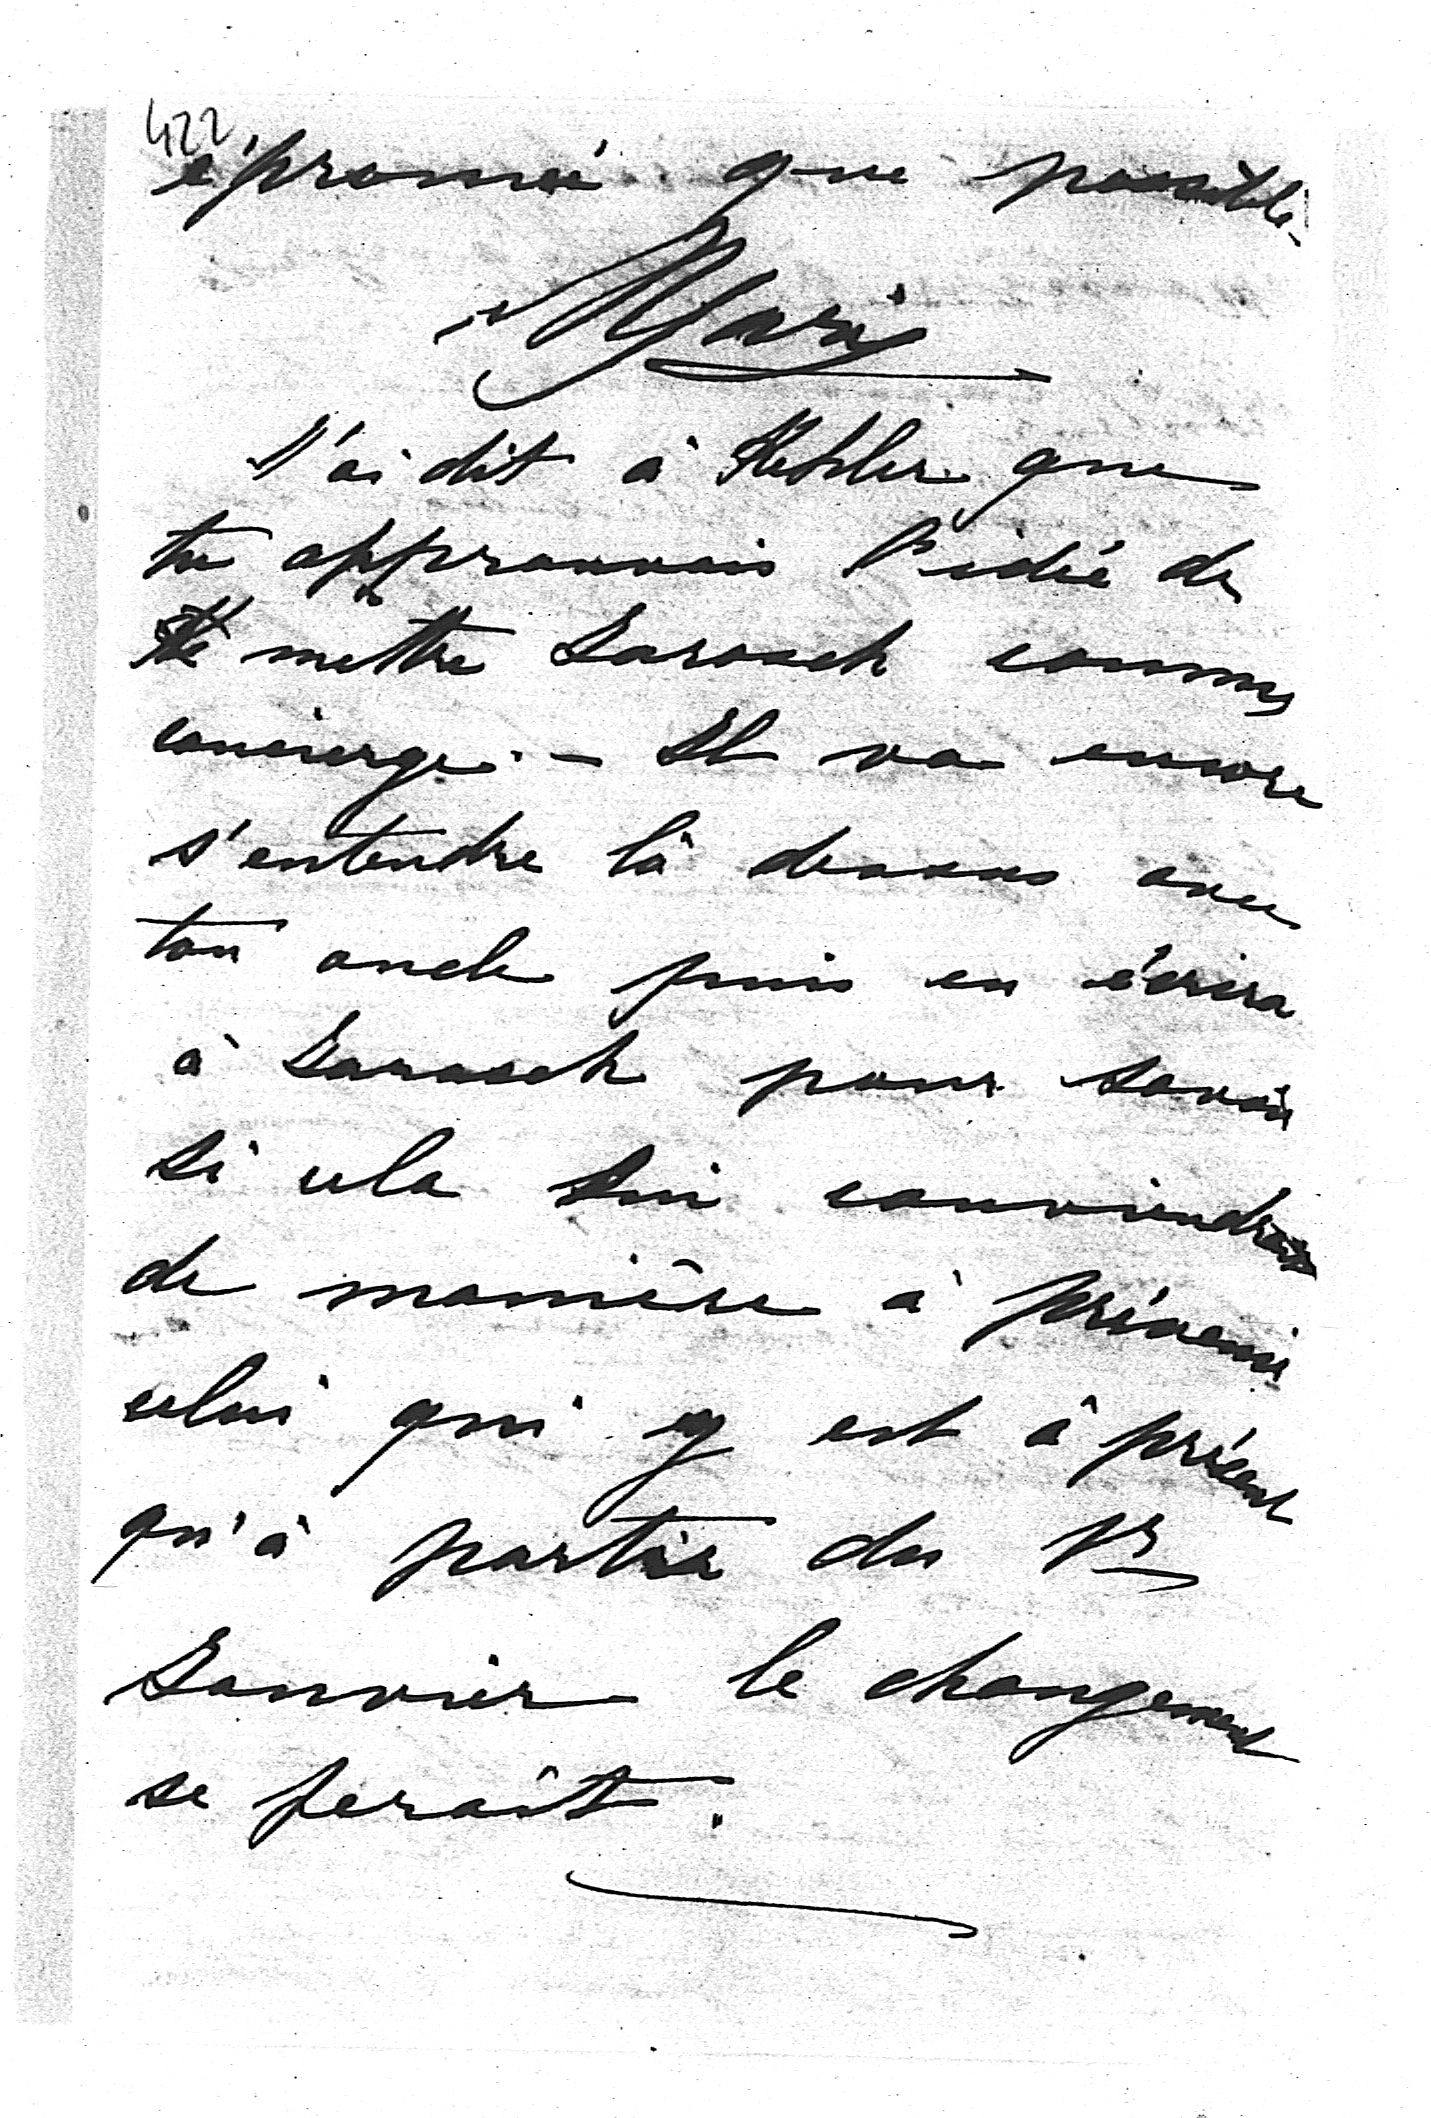 422
éprouvé que possible.
Marie
J'ai dit à Kessler que
tu approuvais l'idée de
mettre Jarosch comme
concierge. - Il va encore
s'entendre là dessus avec
ton oncle puis en écrira
à Jarosch pour savoir
si cela lui conviendrait
de manière à prévenir
celui qui y est à présent
qu'à partir du 1er
Janvier le changement
se ferait.